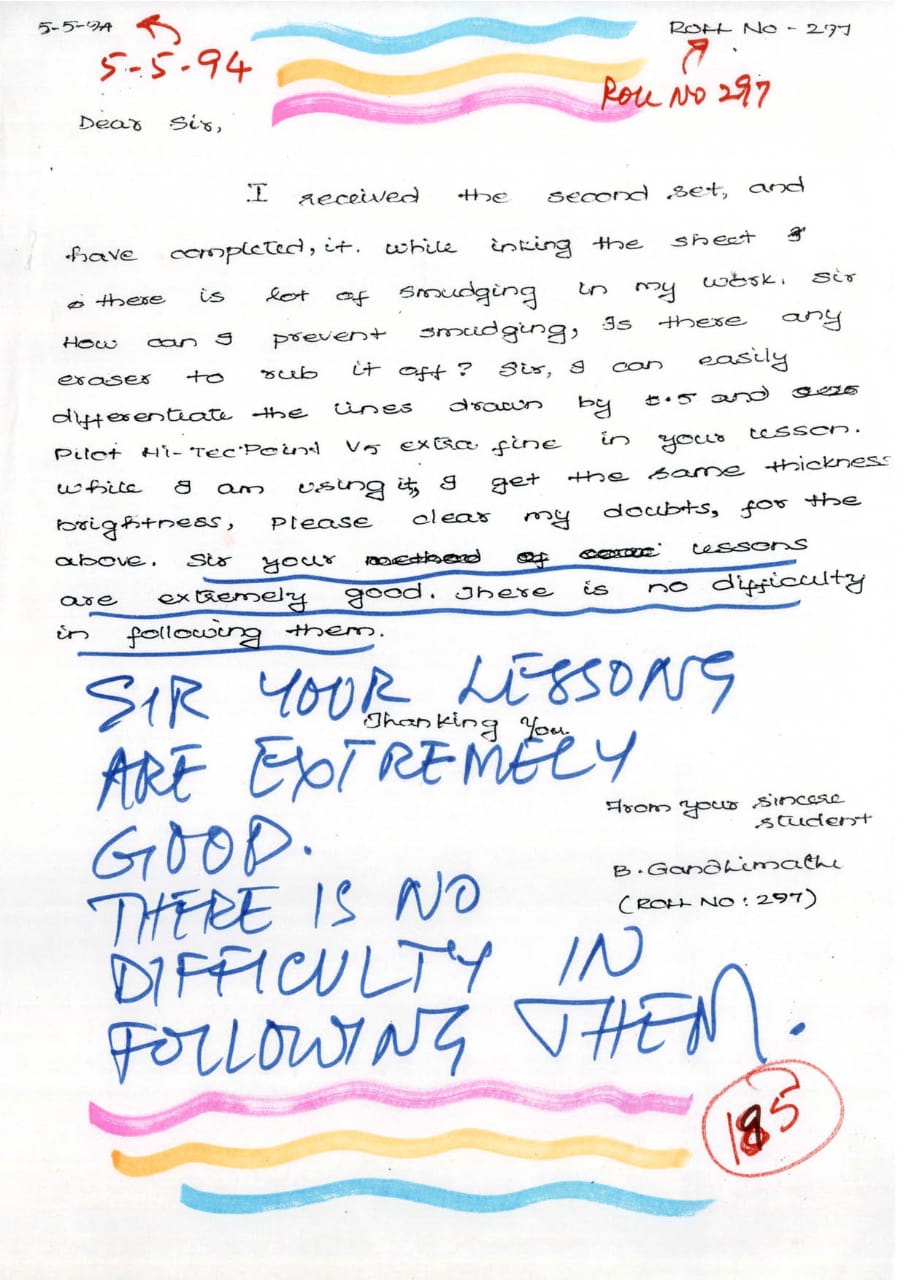 5-5-94 ROLL No - 297
5-5-94
ROLL NO 297
Dear Sir,
I received the second set, and
have completed, it. while inking the sheet
there is lot of smudging in my work. Sir
How can I prevent smudging, Is there any
eraser to rub it off? Sir, I can easily
differentiate the lines drawn by 0.5 and
Pilot Hi-Tec Point V5 extra fine in your lesson.
while I am using it, I get the same thickness
brightness, Please clear my doubts, for the
above. Sir your method of lessons
are extremely good. There is no difficulty
in following them.
SIR YOUR LESSONS
Thanking You.
ARE EXTREMELY
GOOD.
THERE IS NO
DIFFICULTY IN
FOLLOWING THEM.
From your sincere
student
B. Gandhimathi
(ROLL NO: 297)